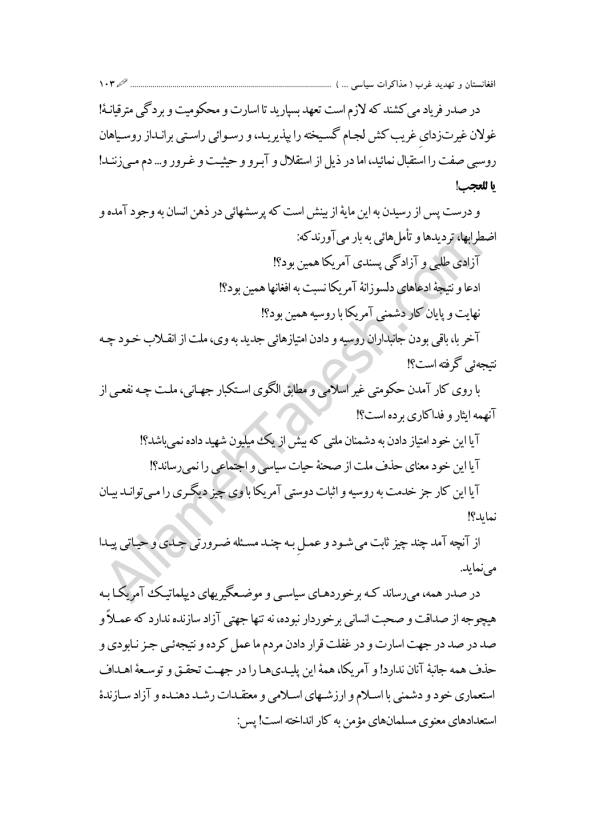 افغانستان و تهدید غرب ( مذاکرات سیاسی ... ) ........................................................................................ ۱۰۳
در صدر فریاد می‌کشند که لازم است تعهد بسپارید تا اسارت و محکومیت و بردگی مترقیانۀ!
غولان غیرت‌زدایِ غریب کش لجام گسیخته را بپذیرید، و رسوائی راستی برانداز روسیاهان
روسبی صفت را استقبال نمائید، اما در ذیل از استقلال و آبرو و حیثیت و غرور و... دم می‌زنند!
یا للعجب!
و درست پس از رسیدن به این مایۀ از بینش است که پرسشهائی در ذهن انسان به وجود آمده و
اضطرابها، تردیدها و تأمل‌هائی به بار می‌آورندکه:
آزادی طلبی و آزادگی پسندی آمریکا همین بود؟!
ادعا و نتیجۀ ادعاهای دلسوزانۀ آمریکا نسبت به افغانها همین بود؟!
نهایت و پایان کار دشمنی آمریکا با روسیه همین بود؟!
آخر با، باقی بودن جانبداران روسیه و دادن امتیازهائی جدید به وی، ملت از انقلاب خود چه
نتیجه‌ئی گرفته است؟!
با روی کار آمدن حکومتی غیر اسلامی و مطابق الگوی استکبار جهانی، ملت چه نفعی از
آنهمه ایثار و فداکاری برده است؟!
آیا این خود امتیاز دادن به دشمنان ملتی که بیش از یك میلیون شهید داده نمی‌باشد؟!
آیا این خود معنای حذف ملت از صحنۀ حیات سیاسی و اجتماعی را نمی‌رساند؟!
آیا این کار جز خدمت به روسیه و اثبات دوستی آمریکا با وی چیز دیگری را می‌تواند بیان
نماید؟!
از آنچه آمد چند چیز ثابت می‌شود و عملِ به چند مسئله ضرورتی جدی و حیاتی پیدا
می‌نماید.
در صدر همه، می‌رساند که برخوردهای سیاسی و موضعگیریهای دیپلماتیك آمریکا به
هیچوجه از صداقت و صحبت انسانی برخوردار نبوده، نه تنها جهتی آزاد سازنده ندارد که عملاً و
صد در صد در جهت اسارت و در غفلت قرار دادن مردم ما عمل کرده و نتیجه‌ئی جز نابودی و
حذف همه جانبۀ آنان ندارد! و آمریکا، همۀ این پلیدی‌ها را در جهت تحقق و توسعۀ اهداف
استعماری خود و دشمنی با اسلام و ارزشهای اسلامی و معتقدات رشد دهنده و آزاد سازندۀ
استعدادهای معنوی مسلمان‌های مؤمن به کار انداخته است! پس:
AllamehTabesh.com